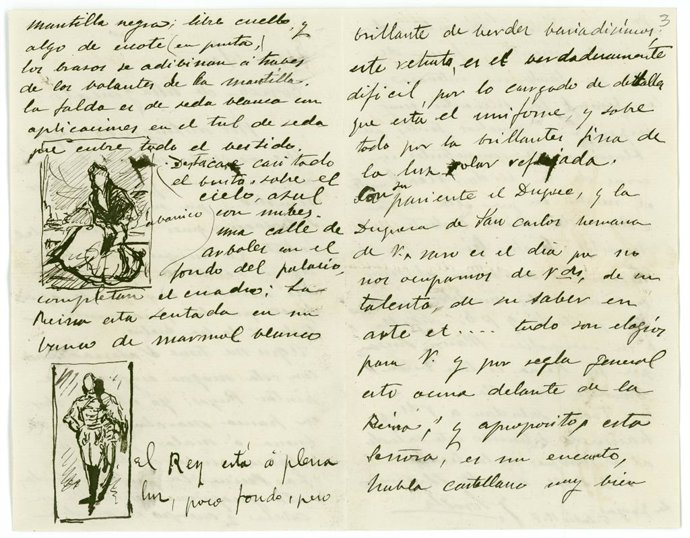 mantilla negra; libre cuello, y
algo de escote (en punta,)
los brasos se adibinan á traves
de los bolantes de la mantilla.
la falda es de seda blanca con
aplicaciones en el tul de seda
que cubre todo el vestido.
Destacase casi todo
el busto, sobre el
cielo, azul
abanico con nubes.
una calle de
arboles en el
fondo del palacio,
completan el cuadro; La
Reina esta sentada en un
banco de marmol blanco
el Rey está á plena
luz, poco fondo, pero
3
brillante de verdes bariadisimos;
este retrato, es el verdaderamente
dificil, por lo cargado de detalla
que esta el uniforme, y sobre
todo por la brillantes fina de
la luz solar reflejada.
Con su pariente el Duque, y la
Duquesa de San Carlos hermana
de V., raro es el dia que no
nos ocupamos de Vds, de su
talento, de su saber en
arte et.... todo son elogios
para V. y por regla general
esto ocurre delante de la
Reina, y aproposito, esta
Señora, es un encanto,
habla castellano muy bien